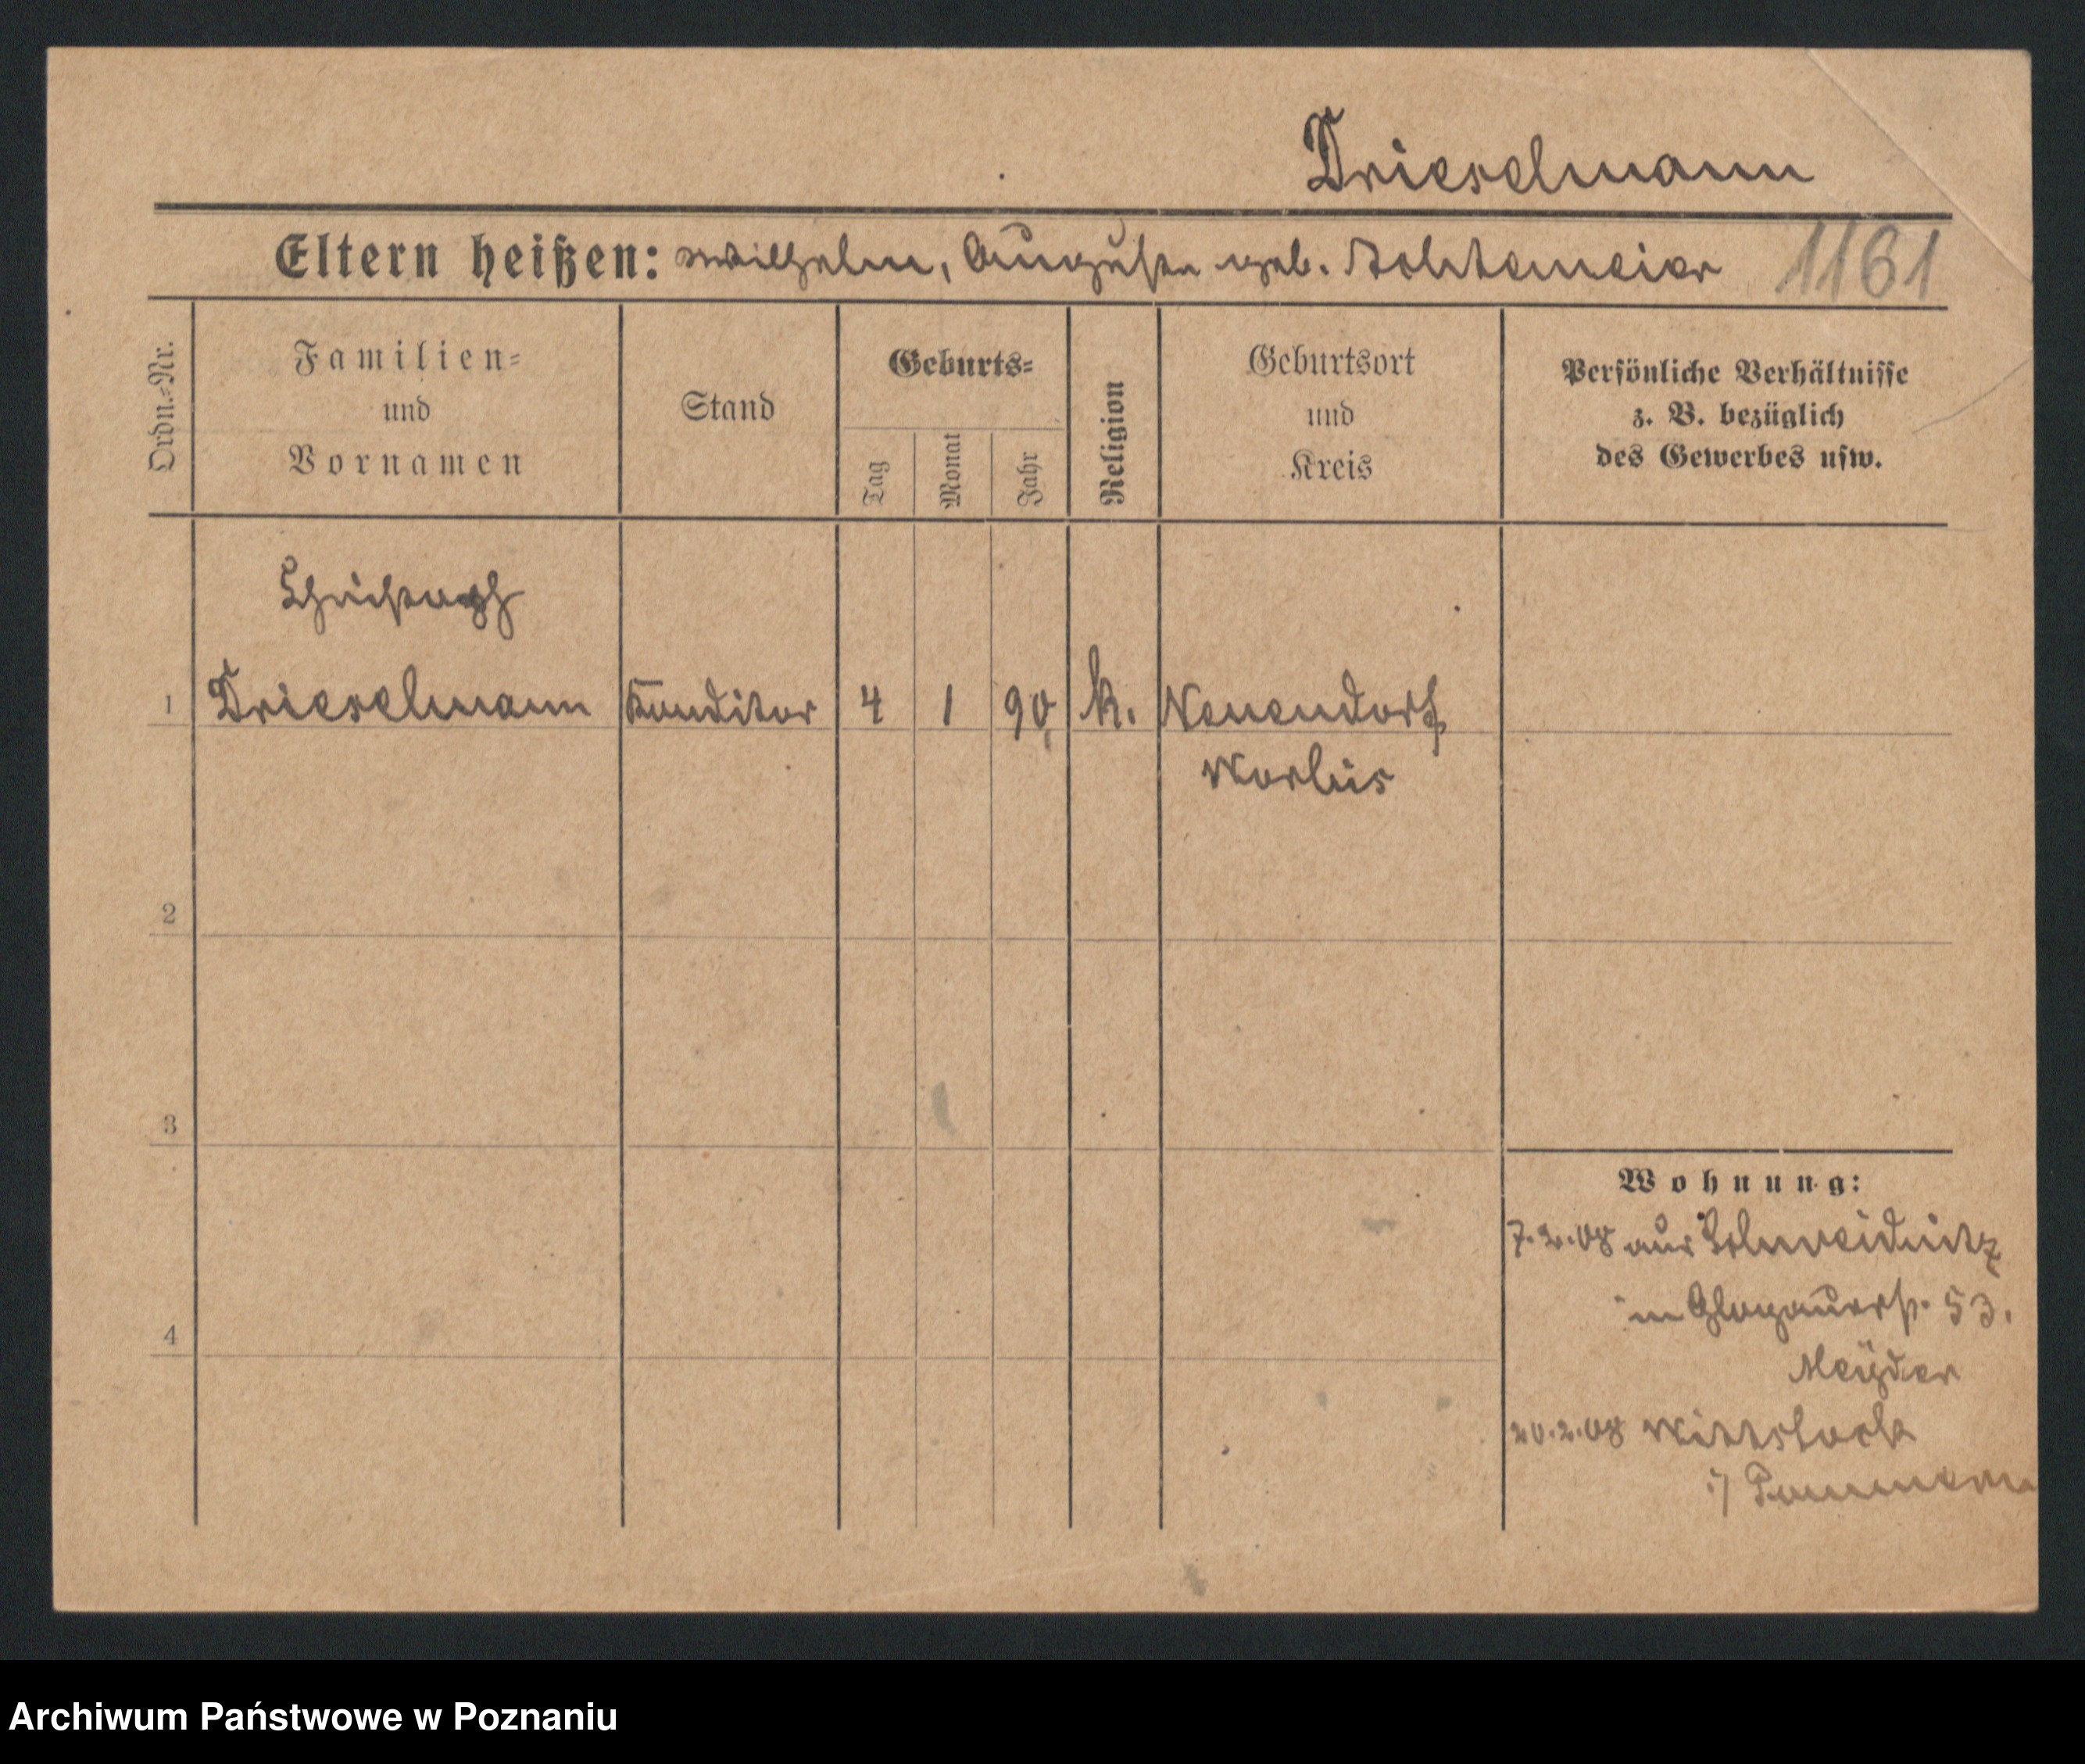 Drieselmann
Eltern heißen: Wilhelm, Auguste geb. Achtemeier 1161
Ordn.=Nr.
Familien=
und
Vornamen
Stand
Geburts=
Tag
Monat
Jahr
Religion
Geburtsort
und
Kreis
Persönliche Verhältnisse
z. B. bezüglich
des Gewerbes usw.
Christoph
1 Drieselmann Konditor 4 1 90, k. Neuendorf,
Worbis
2
3
4
Wohnung:
7.2.08 aus Schweidnitz
in Glogauerstr. 53.
Meyder
20.2.08 Wittstock
i/ Pommern
Archiwum Państwowe w Poznaniu